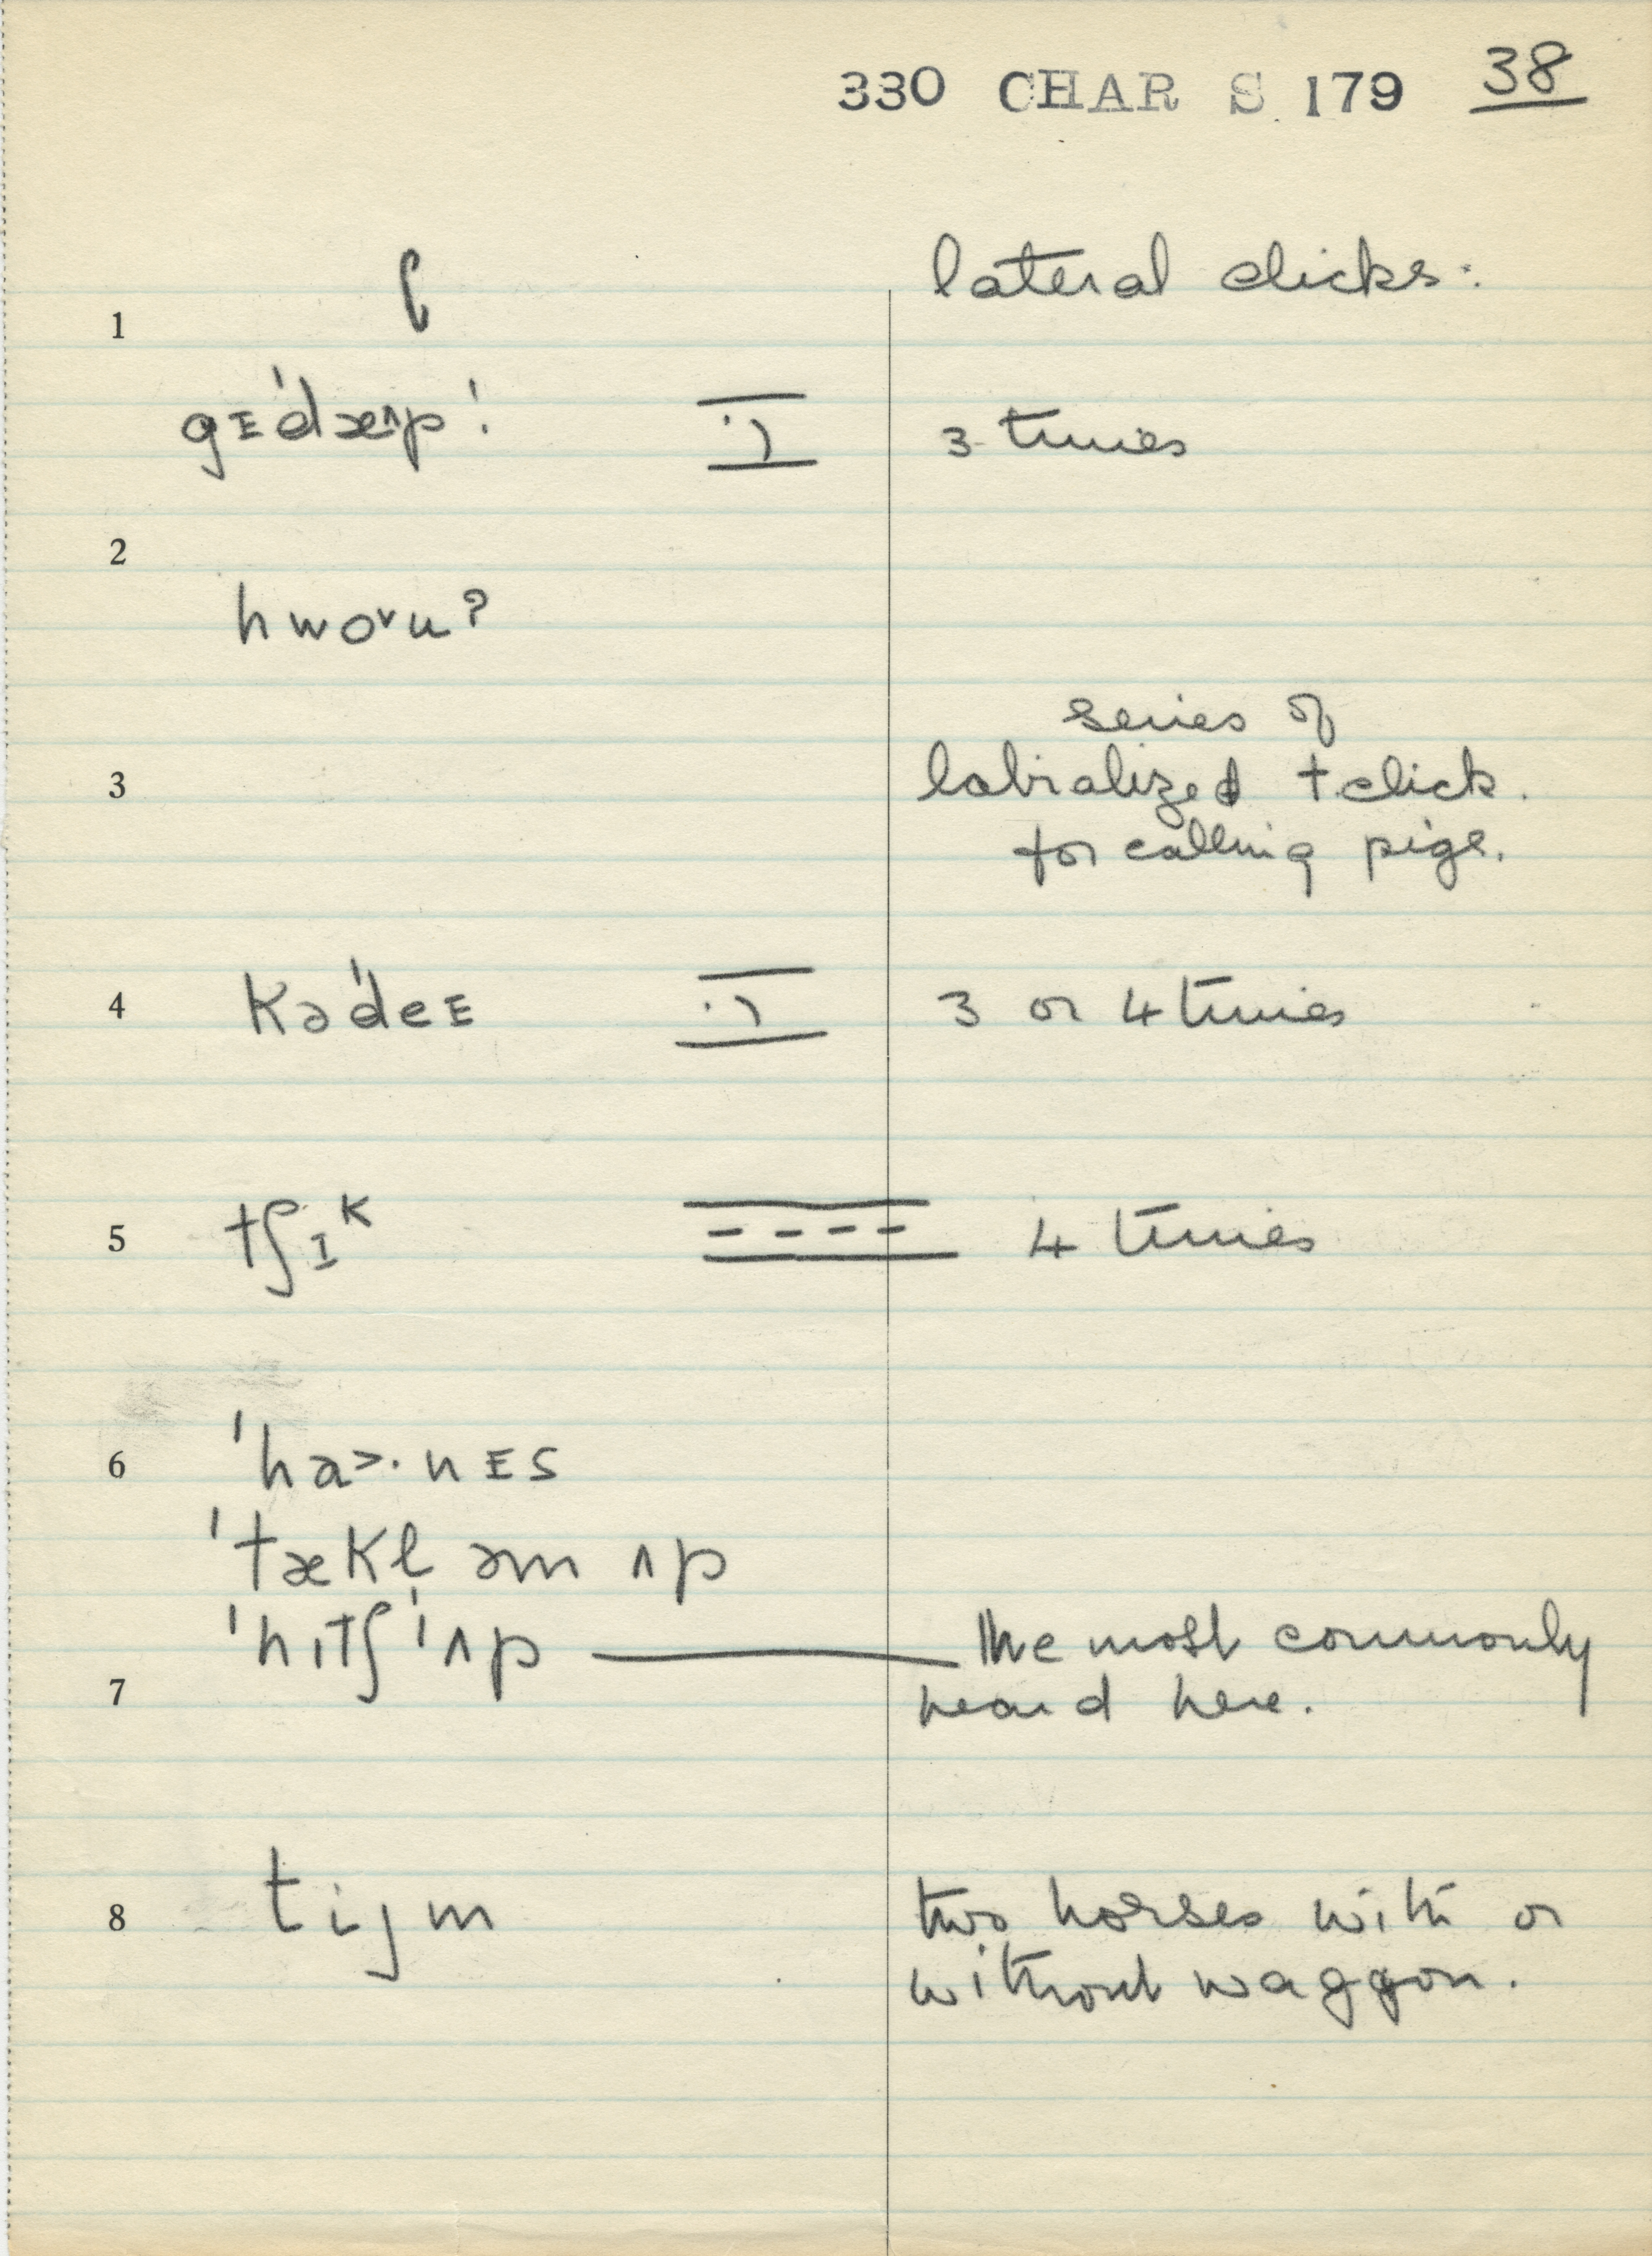 330 CHAR S 179 38
lateral clicks:
1
gᴇˈdæʌp! 3 times
2
hwo˅u?
series of
3 labialized t click.
for calling pigs.
4 kəˈdeᴇ 3 or 4 times
5 tʃɪᴷ 4 times
6 ˈha˃·nᴇs
ˈtækl̩ əm ʌp
ˈhɪtʃ ˈʌp — the most commonly
7 heard here.
8 tijm two horses with or
without waggon.